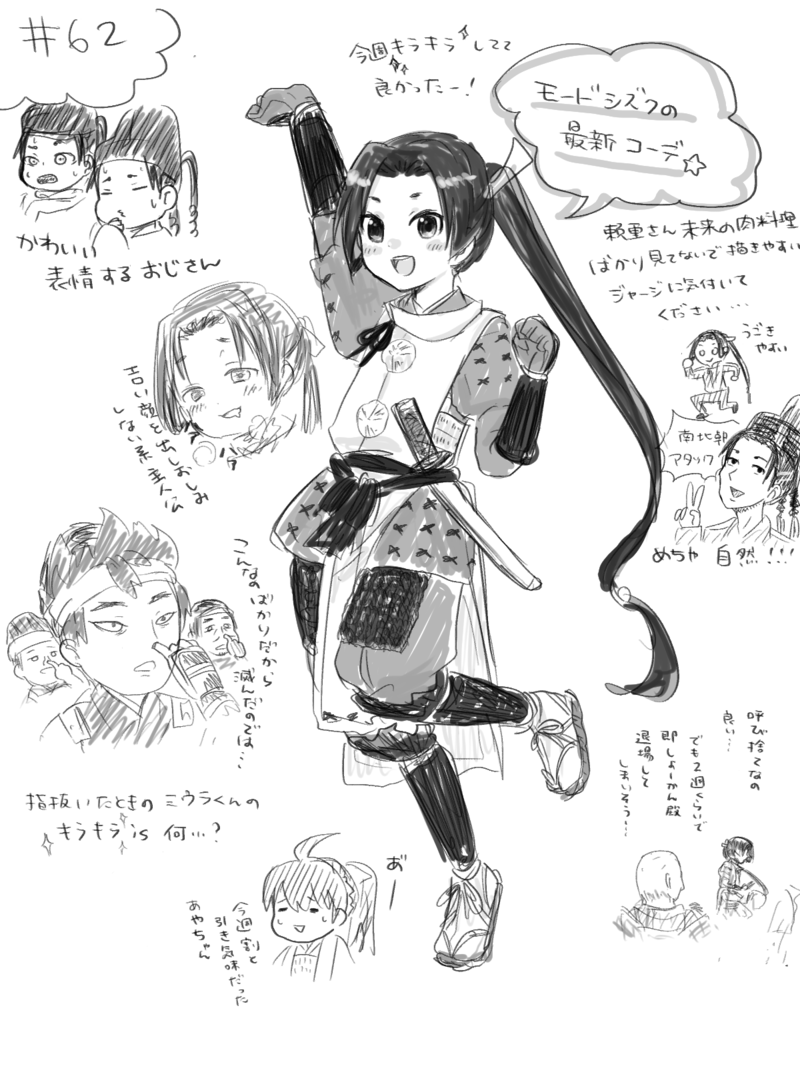 #62
今週キラキラしてて
良かったー!
モードシズクの
最新コーデ☆
頼重さん未来の肉料理
ばかり見てないで描きやすい
ジャージに気付いて
ください…
うごき
やすい
かわいい
表情するおじさん
エロい顔を出しおしみ
しない系主人公
南北朝
アタック
めちゃ 自然!!!
こんなの
ばかりだから
滅んだのでは…
呼び捨てなの
良い…
でも2週くらいで
即しょーかん殿
退場して
しまいそう…
指抜いたときのミウラくんの
キラキラis 何…?
あ゛ー
今週割と
引き気味だった
あやちゃん